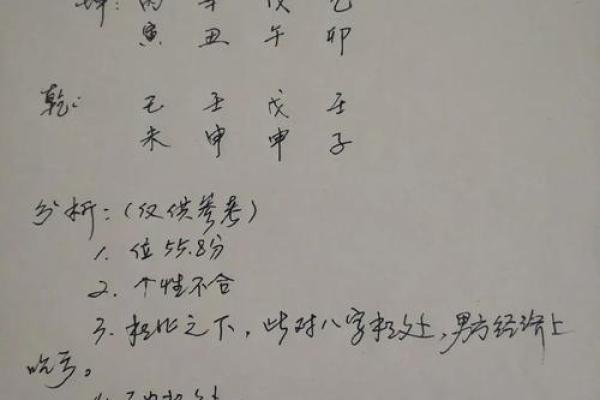 坤: 丙 辛 戊 乙
寅 丑 午 卯
乾: 己 壬 戊 壬
未 申 申 子
分析:(仅供参考)
1. 位55.8分
2. 个性不合
3. 相比之下,此对八字相处上,男方经济上
吃亏。